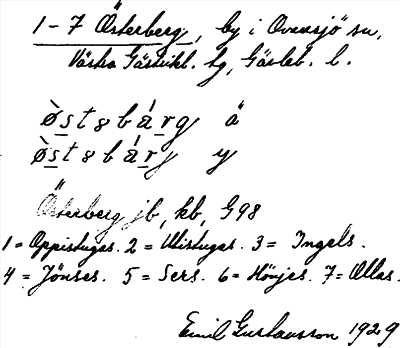 1-7 Österberg, by i Ovansjö sn,
Västra Gästrikl. hg, Gävleb. l.
òstəbárg ä
òstəbárg y
Österberg jb, kb, G98
1= Oppistugas. 2 = Utistugas. 3 = Ingels.
4 = Jönses. 5 = Sers. 6 = Hönjes. 7 = Ollas.
Emil Gustavsson 1929